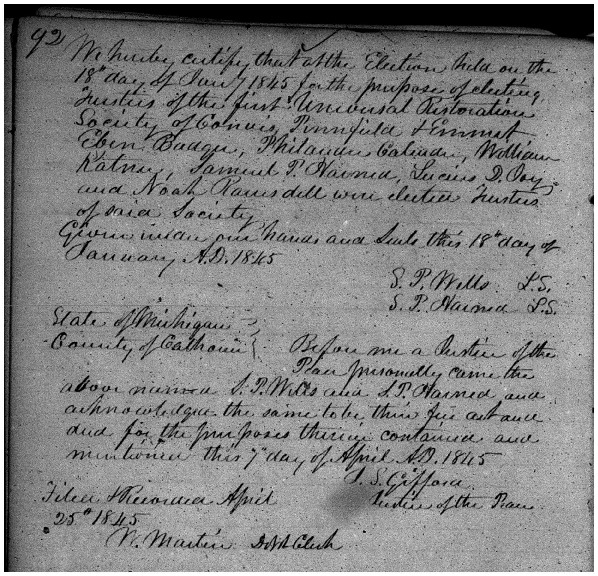 92
We hereby certify that at the Election held on the
18th day of Jany 1845 for the purpose of electing
Trustees of the first Universal Restoration
Society of Convis, Pennfield & Emmet
Eben Badger, Philander Calender, William
Samuel P. Harned, Lucius D. Joy
and Noah Ramsdell were elected Trustees
of said Society
Given under our hands and Seals this 18th day of
January A.D. 1845
S. P. Wells L.S.
S. P. Harned L.S.
State of Michigan
County of Calhoun } Before me a Justice of the
Peace personally came the
above named S. P. Wells and S. P. Harned and
acknowledged the same to be their free act and
deed for the purposes therein contained and
mentioned this 7th day of April A.D. 1845
S. Gifford
Justice of the Peace
Filed & Recorded April
25th 1845
W. Martin Clerk